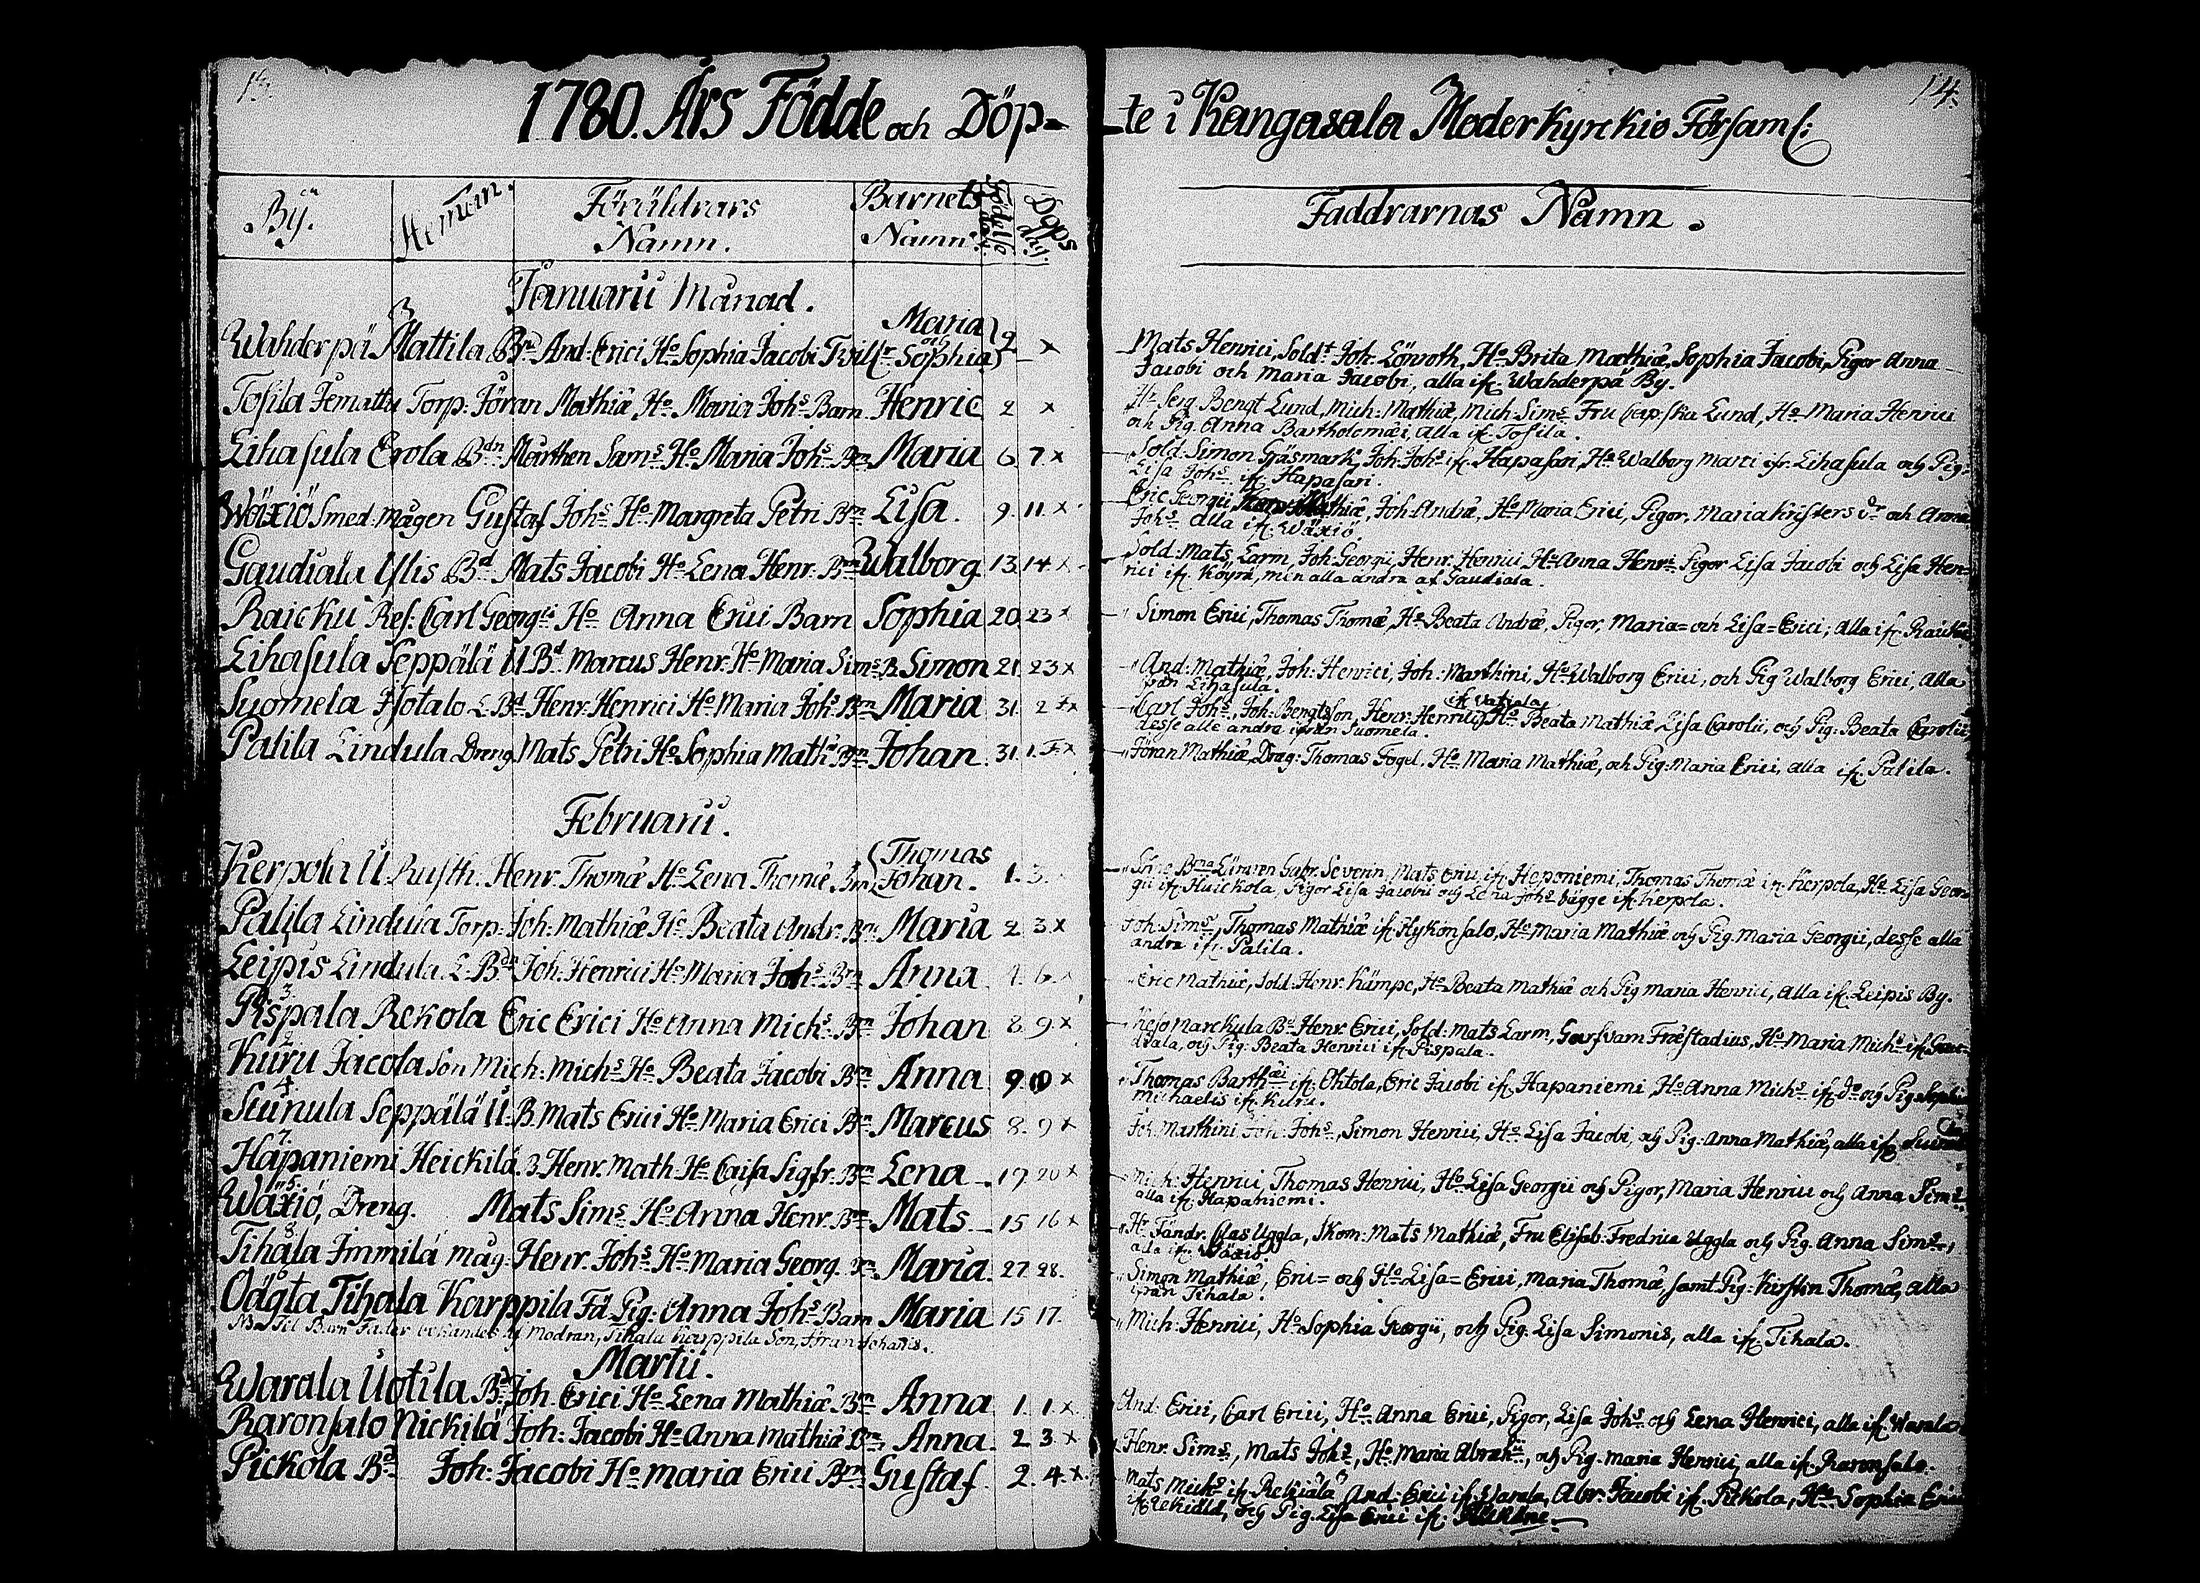 14.
1780. Års Födde och Döp-
te i Kangasala Moderkyrckio Församl:
By. Heman. Föräldrars Namn. Barnets Namn. Födelse dag. Döps dag.
Faddrarnas Namn.
Januarii Månad.
Maria
Wahderpä Mattila Bn And: Erici Ho Sophia Jacobi Tvill:r och Sophia 2. x
Tosila Jemattu Torp: Jöran Mathiæ Ho Maria Johs Barn Henric 2 x
Lihasula Erola Bdn Mårthen Sams Ho Maria Johs Brn Maria 6. 7. x
Wäxiö Smed. mågen Gustaf Johs Ho Margreta Petri Brn Lisa. 9. 11 x
Gaudiala Ylis Bd Mats Jacobi Ho Lena Henr. Brn Walborg 13. 14 x
Raicku Ref: Carl Georgii Ho Anna Erici Barn Sophia 20. 23 x
Lihasula Seppälä U. Bd Marcus Henr. Ho Maria Sims B. Simon 21. 23 x
Suomela Isotalo L. Bd Henr. Henrici Ho Maria Johs Brn Maria 31. 2 F x
Palila Lindula Dreng Mats Petri Ho Sophia Math: Brn Johan. 31. 1. F x
Februarii.
Thomas
Kerpola U. Rusth. Henr. Thomæ Ho Lena Thomæ Brn Johan. 1. 3.
Palila Lindula Torp: Joh: Mathiæ Ho Beata Andr. Brn Maria 2. 3 x
Leipis Lindula. L. Bdn Joh: Henrici Ho Maria Johs Brn Anna 6. x
3.
Pispala Rekola Eric Erici Ho Anna Michs Brn Johan 8. 9 x
2.
Kuru Jacola Son Mich: Michs Ho Beata Jacobi Brn Anna 9. 10 x
4.
Suinula Seppälä U. B. Mats Erici Ho Maria Erici Brn Marcus 8. 9 x
7.
Hapaniemi Heickilä. 3. Henr. Math. Ho Caisa Sigfr. Brn Lena 19. 20 x
5.
Wäxiö, Dreng. Mats Sims Ho Anna Henr. Brn Mats 15 16 x
8.
Tihala Immilä måg: Henr. Johs Ho Maria Georg. Brn Maria. 27. 28.
6.
Oägta Tihala Karppila Fd. Pig: Anna Johs Barn Maria 15. 17.
NB. Til Barn Fader bekändes af Modren, Tihala Karppila Son, Jöran Johanis.
Martii.
Warala Uotila Bd Joh. Erici Ho Lena Mathiæ Brn Anna 1. 1. x
Raronsalo Nickilä Joh: Jacobi Ho Anna Mathiæ Brn Anna. 2. 3. x
Pickola Bd Joh: Jacobi Ho Maria Erici Brn Gustaf. 2. 4. x
Mats Henrici, Soldt Joh: Lönroth, Ho Brita Mathiæ, Sophia Jacobi, Pigor Anna
Jacobi och Maria Jacobi, alla ifr. Wahderpä By.
Hr Serg. Bengt Lund, Mich: Mathiæ, Mich. Sims Fru Lund, Ho Maria Henrici
och Pig. Anna Bartholomæi, alla ifr. Tosila.
Sold. Simon Gjäsmark, Joh: Johs ifr. Hapasari, Ho Walborg Marci ifr. Lihasula och Pig:
Lisa Johs ifr. Hapasari.
Eric Georgii, Mathiæ, Joh: Andræ, Ho Maria Erici, Pigor, Maria Kristers dr och Anna
Johs alla ifr. Wäxiö.
Sold: Mats Larm, Joh: Georgii, Henr. Henrici Ho Anna Henrs Pigor Lisa Jacobi och Lisa Hen-
rici ifr. Köyrä, men alla andra af Gaudiala.
Simon Erici, Thomas Thomæ, Ho Beata Andræ, Pigor, Maria= och Lisa= Erici; alla ifr. Raicku
And: Mathiæ, Joh: Henrici, Joh: Marthini, Ho Walborg Erici, och Pig Walborg Erici, alla
från Lihasula.
ifr. Vatiala
Carl Johs, Joh: Bengtsson, Henr. Henrici, Ho Beata Mathiæ Lisa Carolii, och Pig: Beata Carolii,
desse alle andra ifrån Suomela.
Jöran Mathiæ, Drag: Thomas Fogel, Ho Maria Mathiæ, och Pig: Maria Erici, alla ifr. Palila.
Gabr. Severin, Mats Erici ifr. Hapaniemi, Thomas Thomæ ifr. Kerpola, Ho Lisa Geor-
gii ifr. Huickola, Pigor Lisa Jacobi och Lena Johs bägge ifr. Kerpola.
Joh: Sims, Thomas Mathiæ ifr. Hykönsalo, Ho Maria Mathiæ och Pig. Maria Georgii, desse alla
andra ifr. Palila.
Eric Mathiæ, Sold: Henr. Kämpe, Ho Beata Mathiæ och Pig Maria Henrici, alla ifr. Leipis By.
Marckula Bd Henr. Erici, Sold: Mats Larm, Fræstadius, Ho Maria Michs ifr. Gau-
diala, och Pig: Beata Henrici ifr. Pispala.
Thomas Barthæi ifr. Ohtola, Eric Jacobi ifr. Hapaniemi, Ho Anna Michs ifr. do och Pig Sophia
Michaelis ifr. Kuru.
Joh: Marthini Joh: Johs, Simon Henrici, Ho Lisa Jacobi, och Pig: Anna Mathiæ, alla ifr. Suinula
Mich: Henrici, Thomas Henrici, Ho Lisa Georgii och Pigor, Maria Henrici och Anna Sims
alla ifr. Hapaniemi.
Hr Fändr. Clas Uggla, Skom: Mats Mathiæ, Fru Elisab: Fredrica Uggla och Pig. Anna Sims,
alla ifr. Wäxiö.
Simon Mathiæ, Eric= och Ho Lisa= Erici, Maria Thomæ, samt Pig: Kirstin Thomæ, alla
ifrån Tihala.
Mich: Henrici, Ho Sophia Georgii, och Pig: Lisa Simonis, alla ifr. Tihala.
And: Erici, Carl Erici, Ho Anna Erici, Pigor, Lisa Johs och Lena Henrici, alla ifr. Warala
Henr. Sims, Mats Johs, Ho Maria Abrah:i, och Pig. Maria Henrici, alla ifr. Raronsalo.
Mats Michs ifr. Rekiälä, And: Erici ifr. Warala, Abr: Jacobi ifr. Pickola, Ho Sophia Erici
ifr. Rekiälä, och Pig. Lisa Erici ifr.